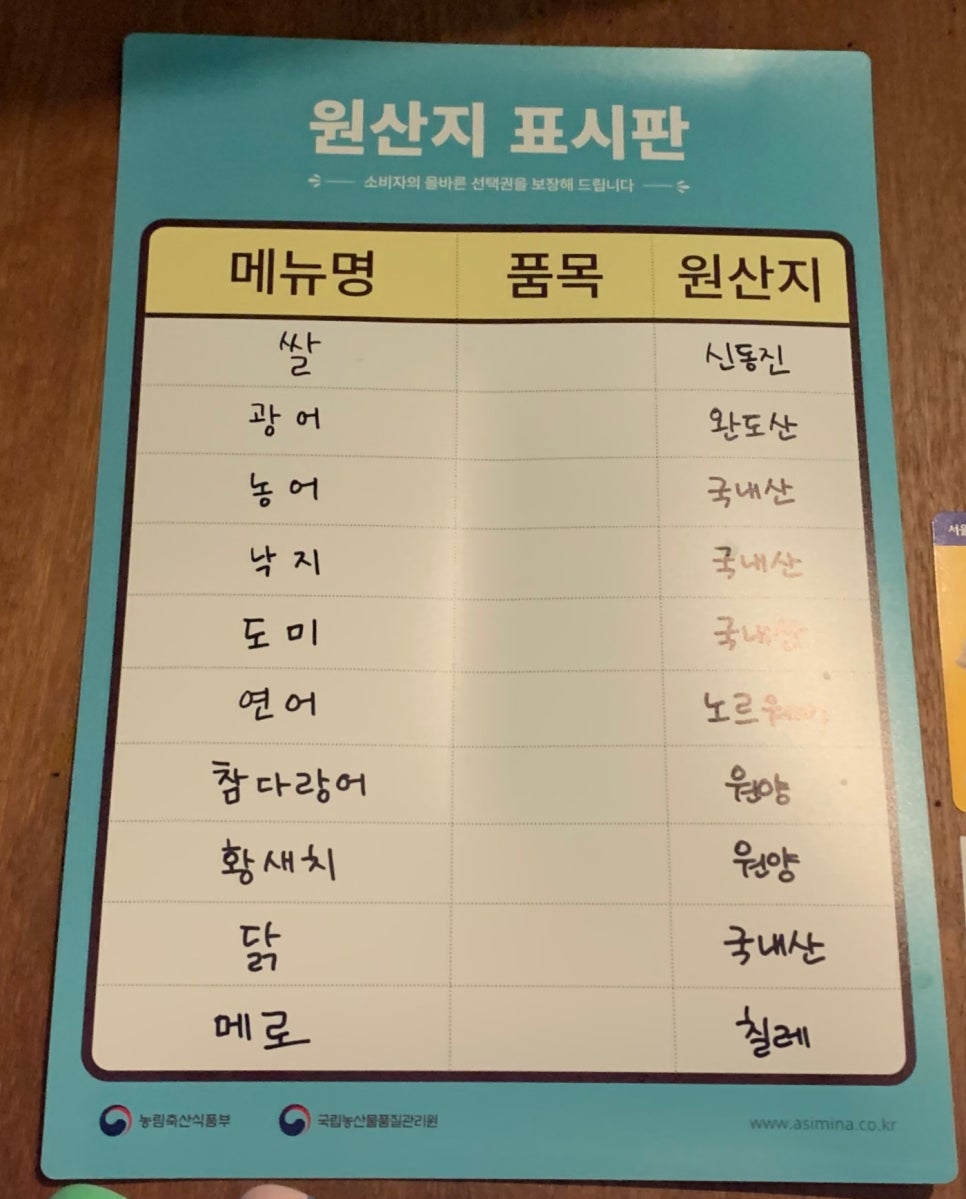 원산지 표시판
소비자의 올바른 선택권을 보장해 드립니다
메뉴명 품목 원산지
쌀 신동진
광어 완도산
농어 국내산
낙지 국내산
도미 국내산
연어 노르웨이
참다랑어 원양
황새치 원양
닭 국내산
메로 칠레
농림축산식품부 국립농산물품질관리원 www.asimina.co.kr